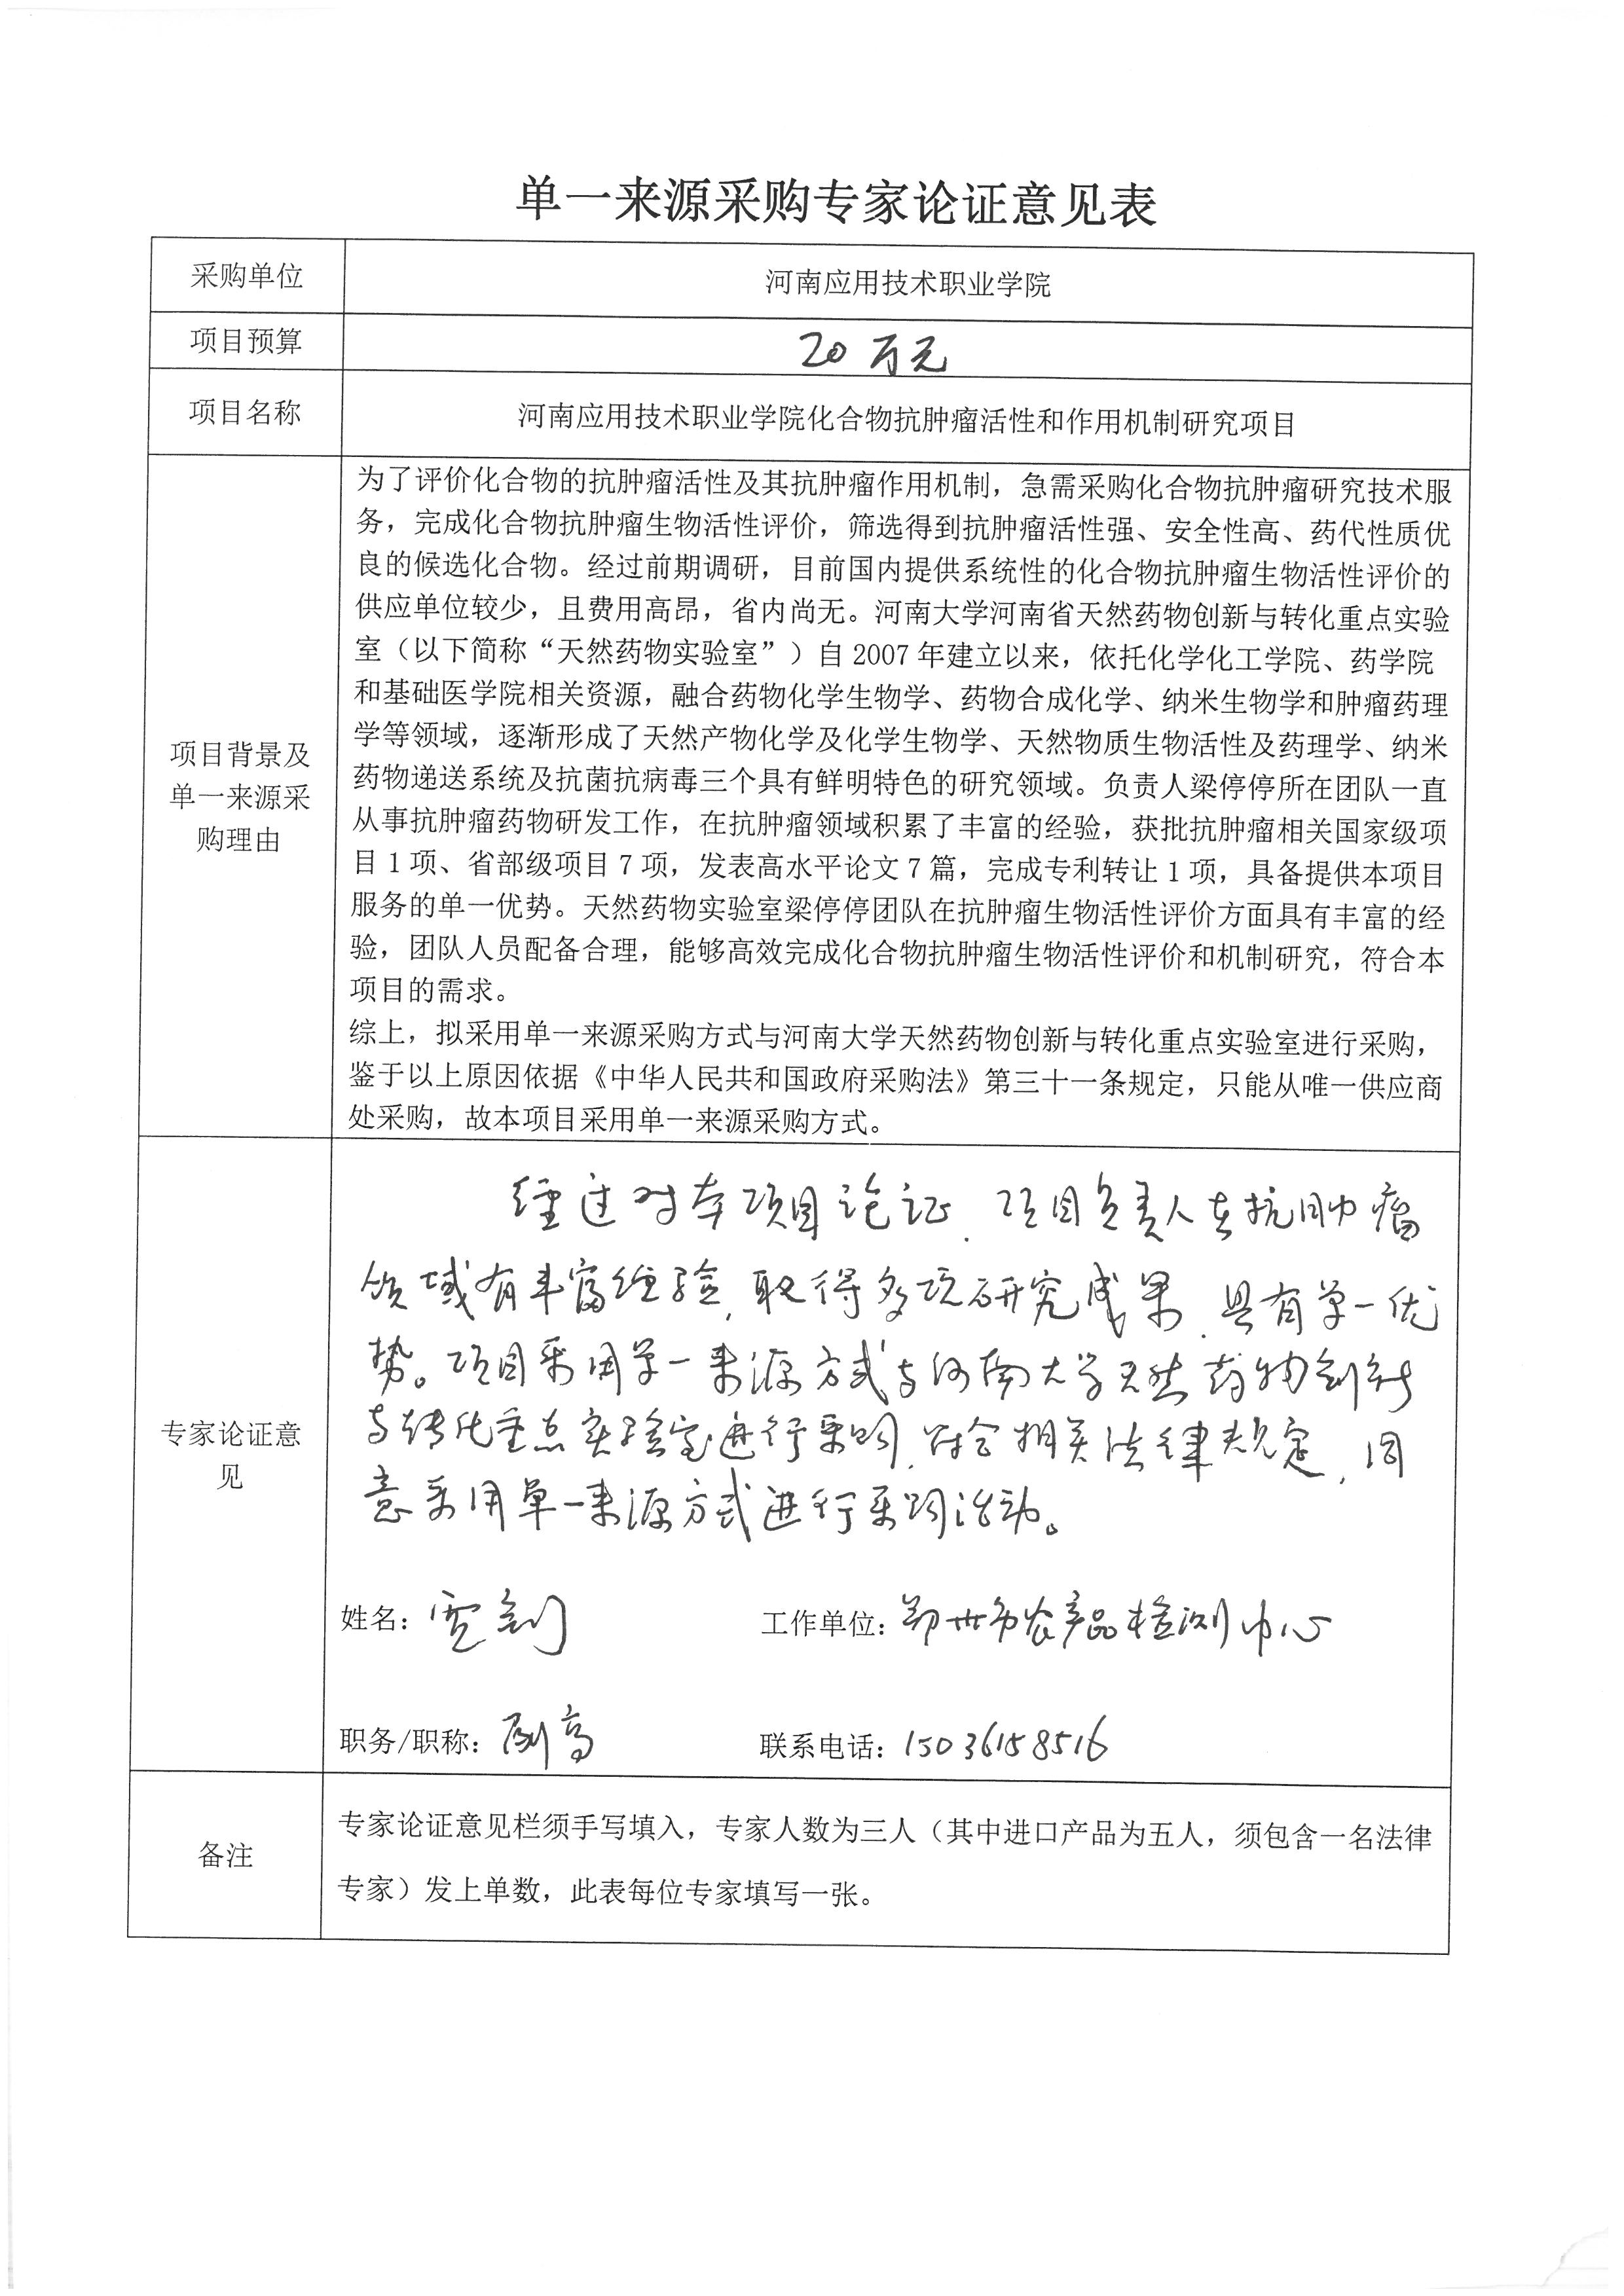 单一来源采购专家论证意见表
采购单位
河南应用技术职业学院
项目预算
20万元
项目名称
河南应用技术职业学院化合物抗肿瘤活性和作用机制研究项目
项目背景及
单一来源采
购理由
为了评价化合物的抗肿瘤活性及其抗肿瘤作用机制，急需采购化合物抗肿瘤研究技术服
务，完成化合物抗肿瘤生物活性评价，筛选得到抗肿瘤活性强、安全性高、药代性质优
良的候选化合物。经过前期调研，目前国内提供系统性的化合物抗肿瘤生物活性评价的
供应单位较少，且费用高昂，省内尚无。河南大学河南省天然药物创新与转化重点实验
室（以下简称“天然药物实验室”）自2007年建立以来，依托化学化工学院、药学院
和基础医学院相关资源，融合药物化学生物学、药物合成化学、纳米生物学和肿瘤药理
学等领域，逐渐形成了天然产物化学及化学生物学、天然物质生物活性及药理学、纳米
药物递送系统及抗菌抗病毒三个具有鲜明特色的研究领域。负责人梁停停所在团队一直
从事抗肿瘤药物研发工作，在抗肿瘤领域积累了丰富的经验，获批抗肿瘤相关国家级项
目1项、省部级项目7项，发表高水平论文7篇，完成专利转让1项，具备提供本项目
服务的单一优势。天然药物实验室梁停停团队在抗肿瘤生物活性评价方面具有丰富的经
验，团队人员配备合理，能够高效完成化合物抗肿瘤生物活性评价和机制研究，符合本
项目的需求。
综上，拟采用单一来源采购方式与河南大学天然药物创新与转化重点实验室进行采购，
鉴于以上原因依据《中华人民共和国政府采购法》第三十一条规定，只能从唯一供应商
处采购，故本项目采用单一来源采购方式。
专家论证意
见
经过对本项目论证，项目负责人在抗肿瘤
领域有丰富经验，取得多项研究成果，具有单一优
势。项目采用单一来源方式与河南大学天然药物创新
与转化重点实验室进行采购，符合相关法律规定，同
意采用单一来源方式进行采购活动。
姓名：
工作单位：郑州市农产品检测中心
职务/职称：副高
联系电话：15036158516
备注
专家论证意见栏须手写填入，专家人数为三人（其中进口产品为五人，须包含一名法律
专家）发上单数，此表每位专家填写一张。